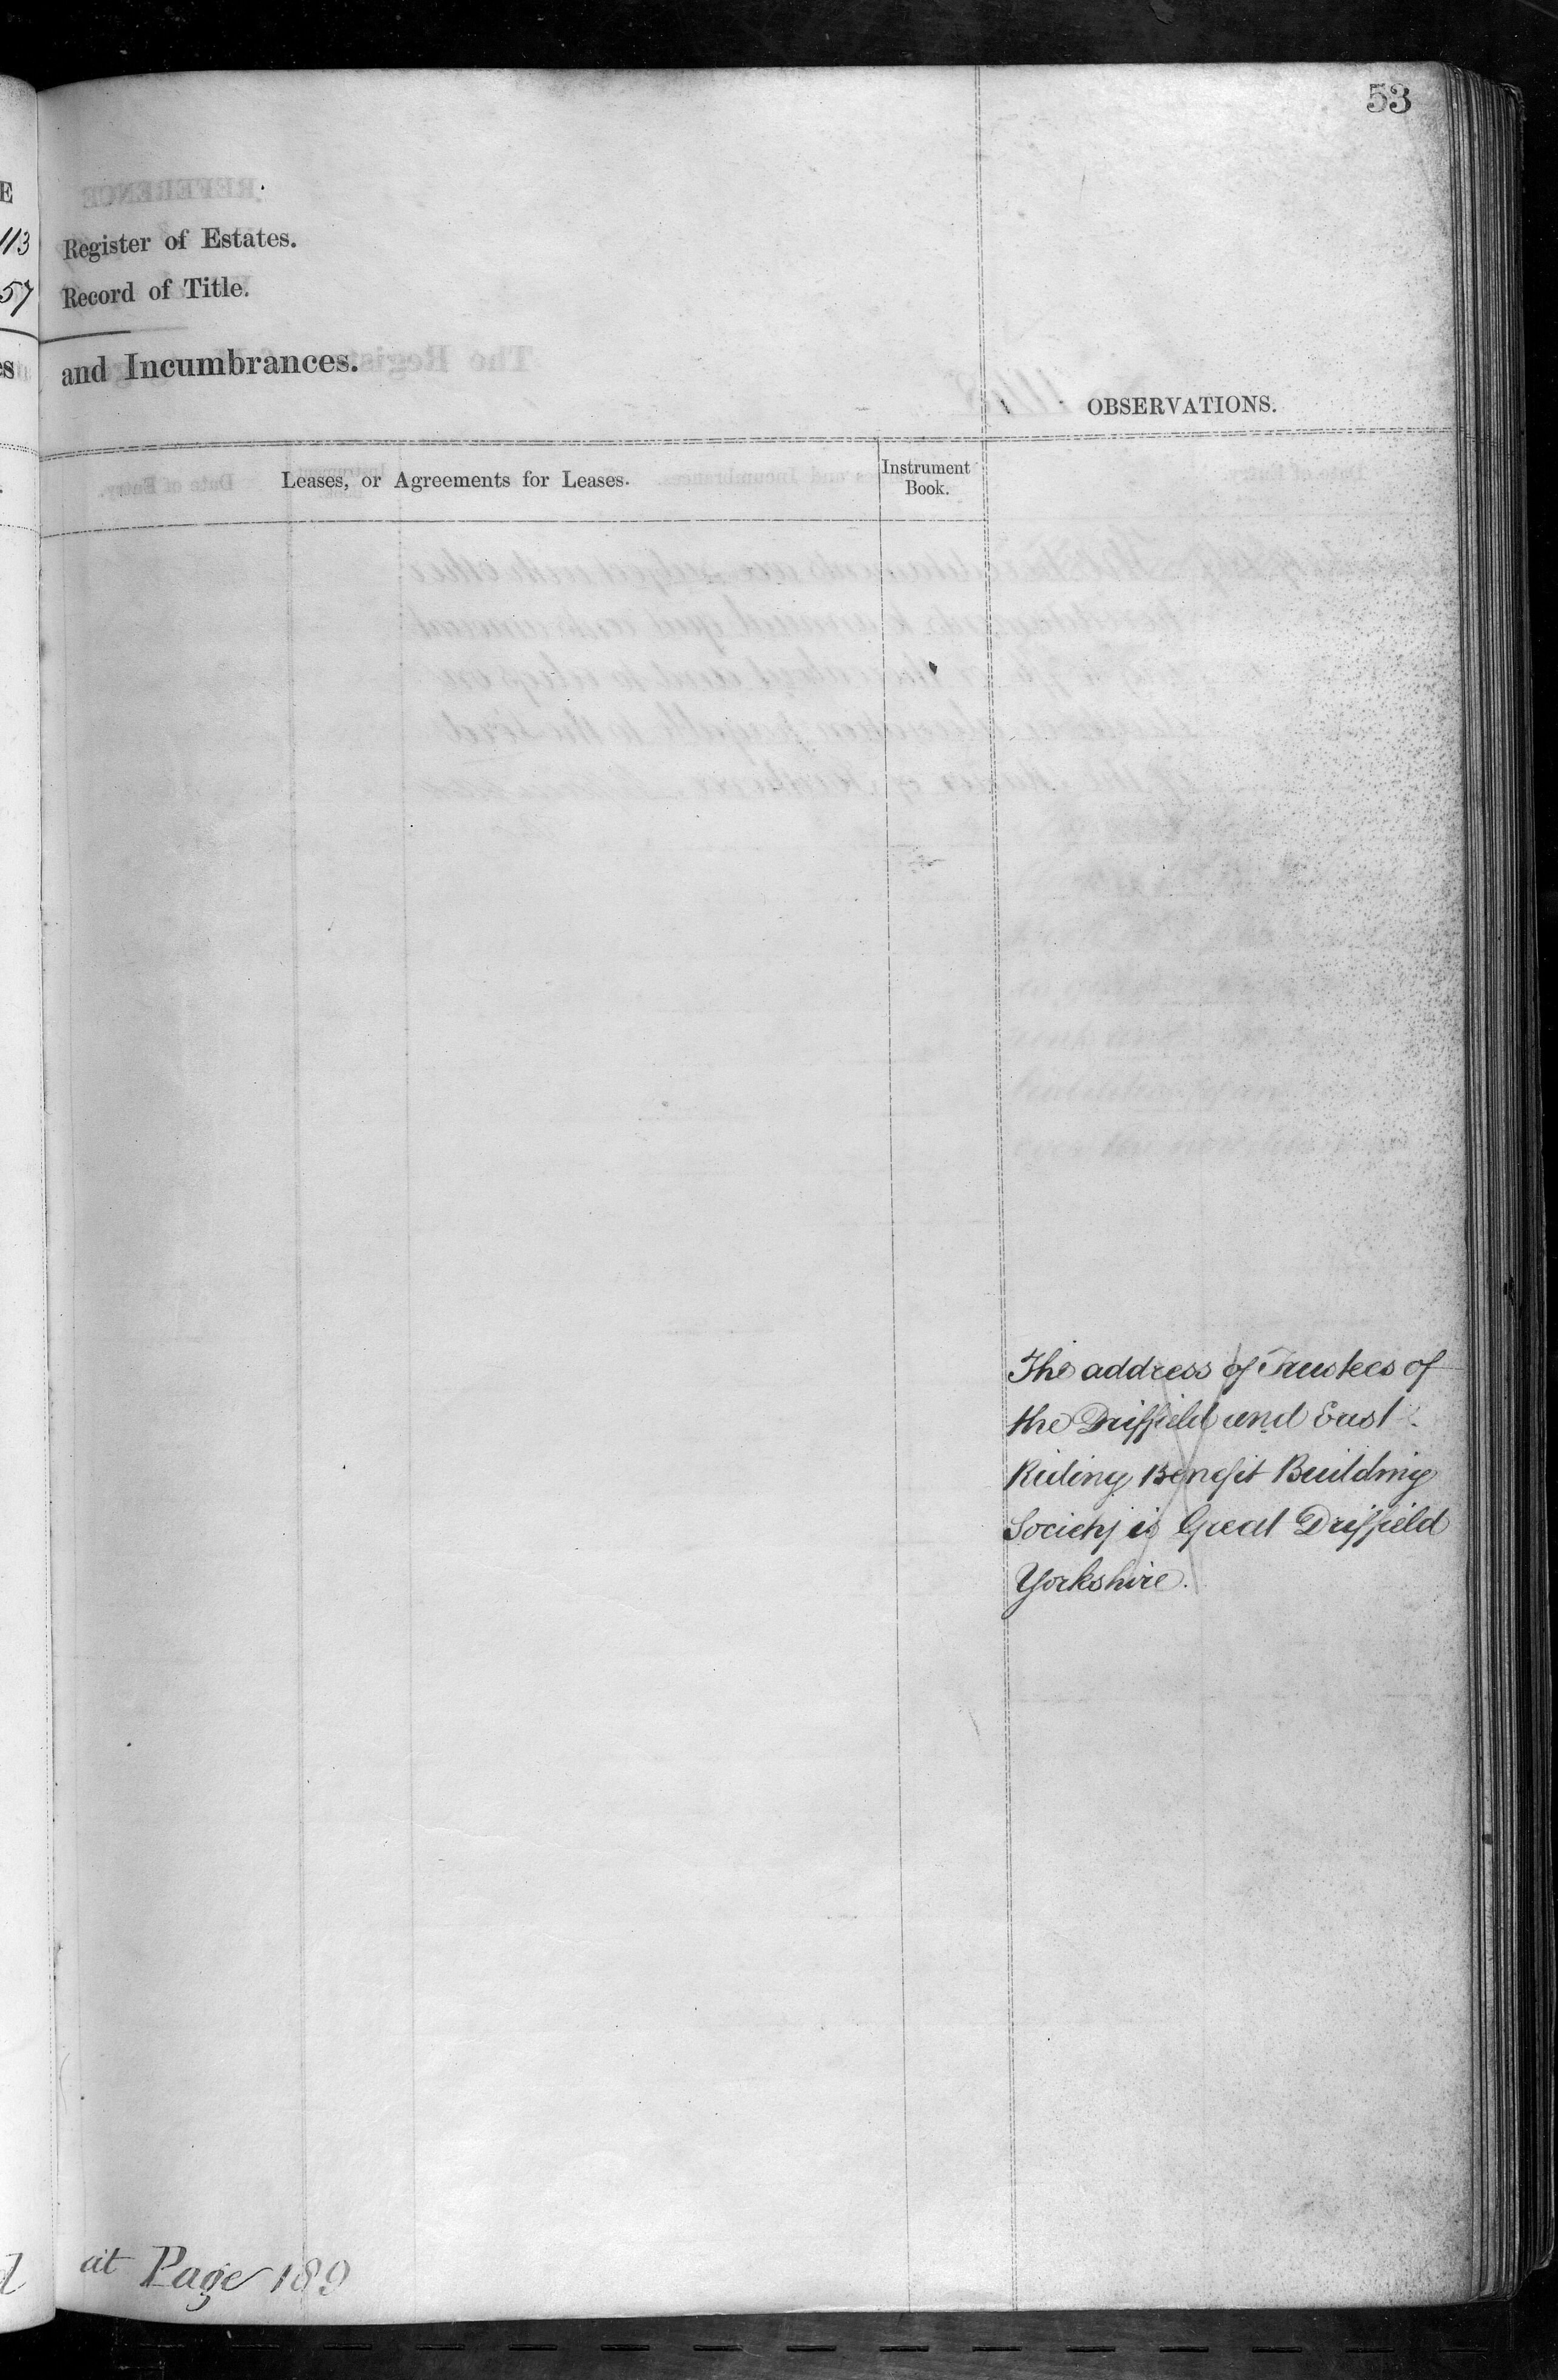 53
E
113 Register of Estates.
57 Record of Title.
and Incumbrances.
OBSERVATIONS.
Leases, or Agreements for Leases.
Instrument
Book.
The address of Trustees of
the Driffield and East
Riding Benefit Building
Society is Great Driffield
Yorkshire.
at Page 189